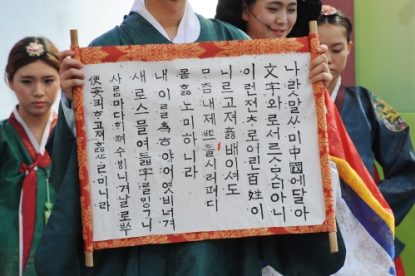 나랏말ᄊᆞ미中國에달아
文字와로서르ᄉᆞᄆᆞᆺ디아니
이런젼ᄎᆞ로어린百姓이
니르고져ᄒᆞᇙ배이셔도
ᄆᆞᄎᆞᆷ내제ᄠᅳ들시러펴디
몯ᄒᆞᇙ노미하니라
내이ᄅᆞᆯ爲ᄒᆞ야어엿비너겨
새로스믈여듧字ᄅᆞᆯᄆᆡᇰᄀᆞ니
사ᄅᆞᆷ마다ᄒᆡᅇᅧ수ᄫᅵ니겨날로ᄡᅮ
便安킈ᄒᆞ고져ᄒᆞᇙᄯᆞᄅᆞ미니라